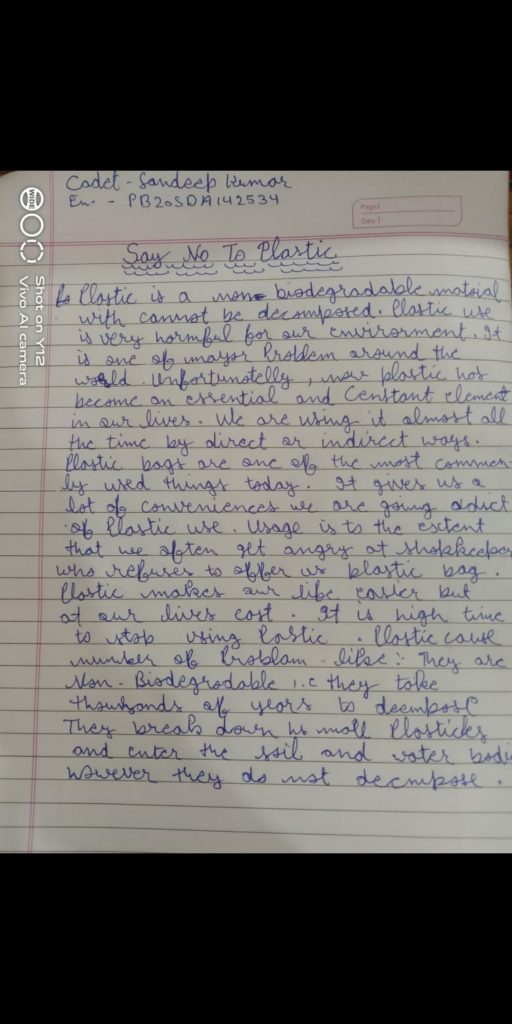 Cadet - Sandeep Kumar
En. - PB20SDA142534
Page:
Date:
Say No To Plastic
Plastic is a non biodegradable matoial
with cannot be decomposed. Plastic use
is very harmful for our envirorment. It
is one of mayor Problem around the
world. Unfortunatelly, now plastic has
become an essential and Constant element
in our lives. We are using it almost all
the time by direct or indirect ways.
Plastic bags are one of the most commen
ly used things today. It gives us a
lot of conveniences we are going addict
of Plastic use. Usage is to the extent
that we often get angry at shopkeeper
who refuses to offer us plastic bag.
Plastic makes our life easier but
at our lives cost. It is high time
to stop using Plastic. Plastic cause
number of Problam like :- They are
Non-Biodegradable i.e they take
thousands of years to deempose
They break down small Plasticks
and enter the soil and water bodi
however they do not decmpose.
WIDE
Shot on Y12
Vivo AI camera